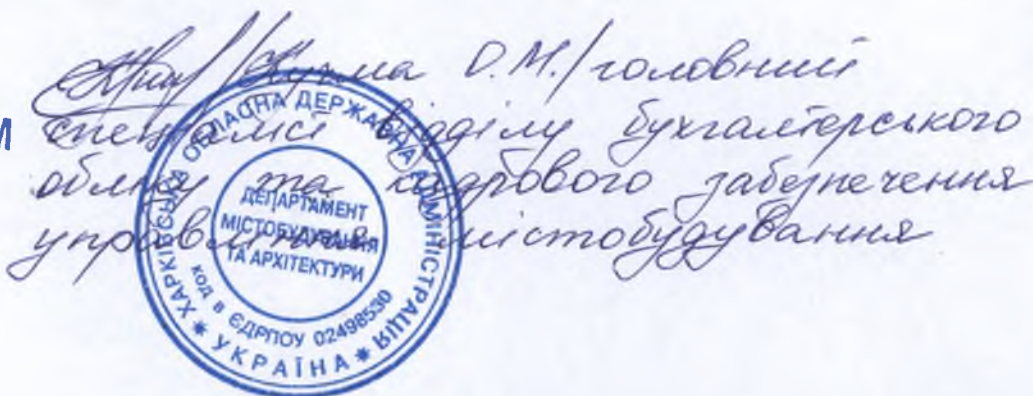 /Кузьма О.М./ головний
м спеціаліст відділу бухгалтерського
обліку та кадрового забезпечення
управління містобудування
ХАРКІВСЬКА ОБЛАСНА ДЕРЖАВНА АДМІНІСТРАЦІЯ
* УКРАЇНА *
ДЕПАРТАМЕНТ
МІСТОБУДУВАННЯ
ТА АРХІТЕКТУРИ
код в ЄДРПОУ 02498530